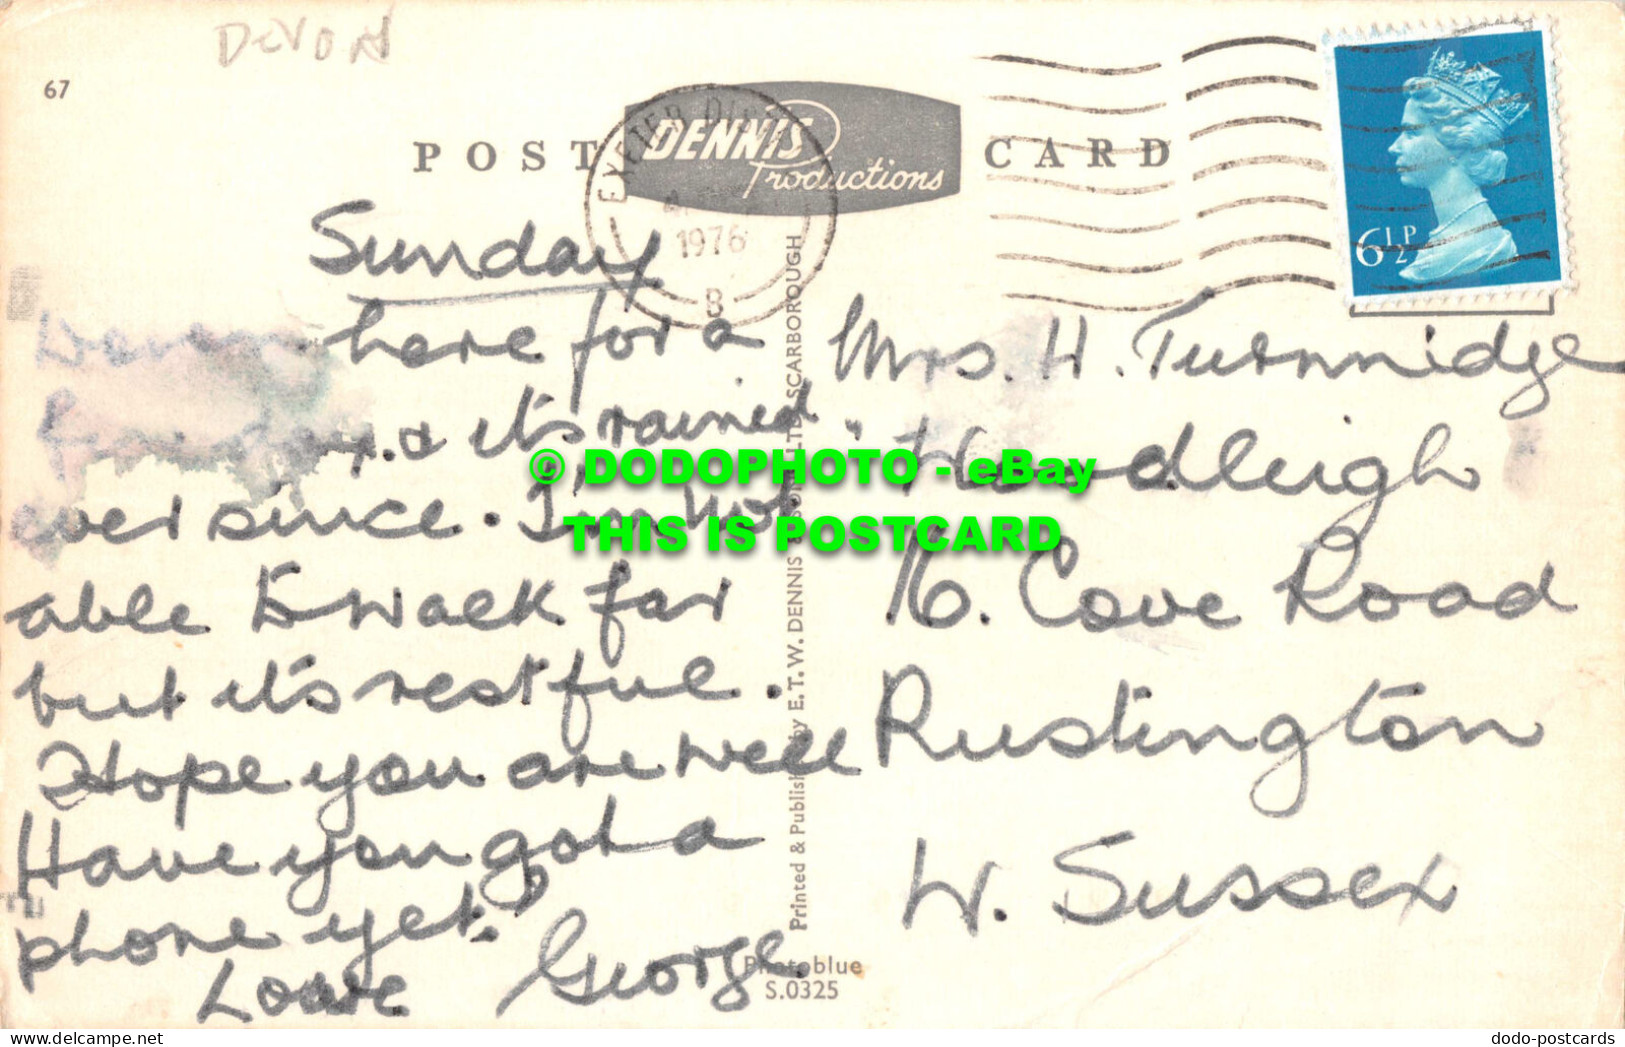 DEVON
67
POST CARD
DENNIS
Productions
EXETER DIST
1976
8
6½P
Sunday
here for a
& it's rained
ever since. I'm not
able to walk far
but it's restful.
Hope you are well
Have you got a
phone yet?
Love George
Mrs. H. Turnnidge
"Hoodleigh
16. Cove Road
Rustington
W. Sussex
Printed & Published by E. T. W. DENNIS & SONS LTD SCARBOROUGH
Photoblue
S.0325
© DODOPHOTO - eBay
THIS IS POSTCARD
dodo-postcards